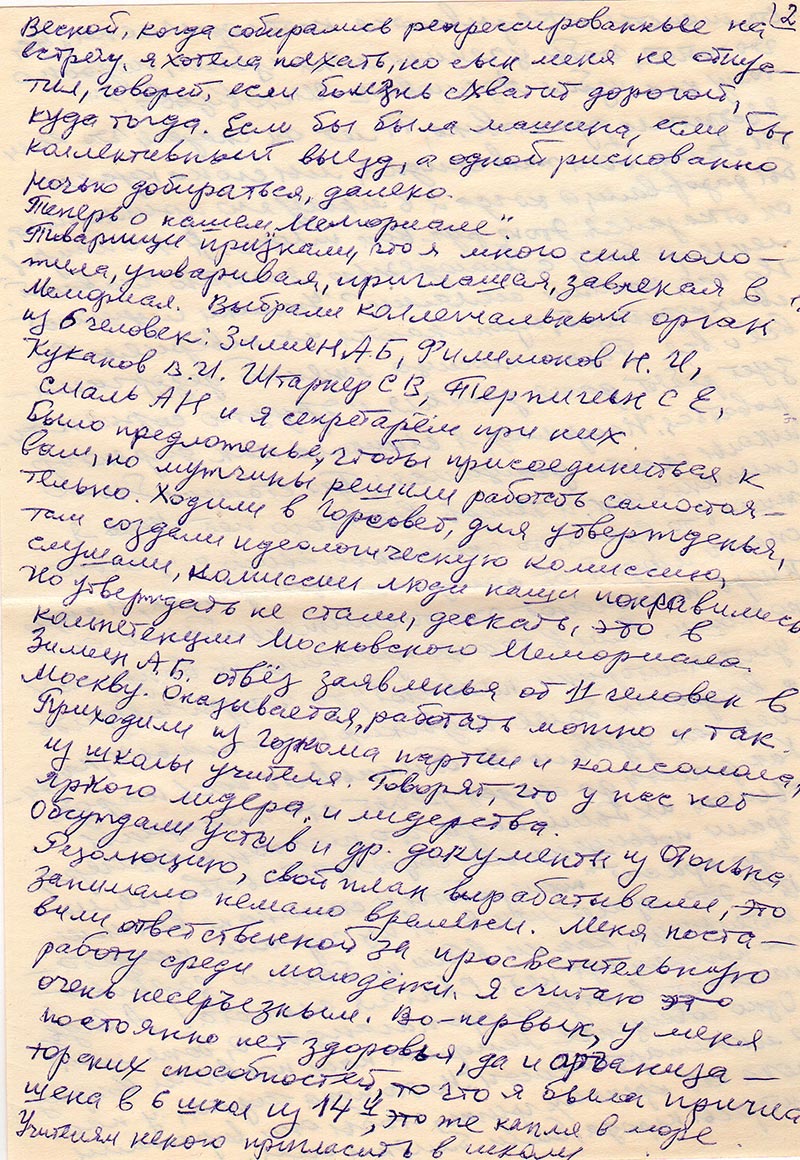 2
Весной, когда собирались репрессированные на
встречу, я хотела поехать, но сын меня не отпус-
тил, говорит, если болезнь схватит дорогой,
куда тогда. Если бы была машина, если бы
коллективный выезд, а одной рискованно
ночью добираться, далеко.
Теперь о нашем „Мемориале".
Товарищи признали, что я много сил поло-
жила, уговаривая, приглашая, завлекая в
Мемориал. Выбрали коллегиальный орган
из 6 человек: Зимен А Б, Филимонов Н. И,
Куканов В. И. Штаркер С В, С Е,
Смаль А Н и я секретарём при них.
Было предложенье, чтобы присоединиться к
вам, но мужчины решили работать самостоя-
тельно. Ходили в Горсовет, для утвержденья,
там создали идеологическую комиссию,
слушали, комиссии люди наши понравились
но утверждать не стали, дескать, это в
компетенции Московского Мемориала.
Зимен А. Б. отвёз заявленья от 11 человек в
Москву. Оказывается, работать можно и так.
Приходили из горкома партии и комсомола,
из школы учителя. Говорят, что у нас нет
яркого лидера. и лидерства.
Обсуждали Устав и др. документы из
Резолюцию, свой план вырабатывали, это
занимало немало времени. Меня поста-
вили ответственной за просветительную
работу среди молодёжи. Я считаю это
очень несерьезным. Во-первых, у меня
постоянно нет здоровья, да и организа-
торских способностей, то что я была пригла
шена в 6 школ из 14ч, это же капля в море.
Учителям некого пригласить в школы